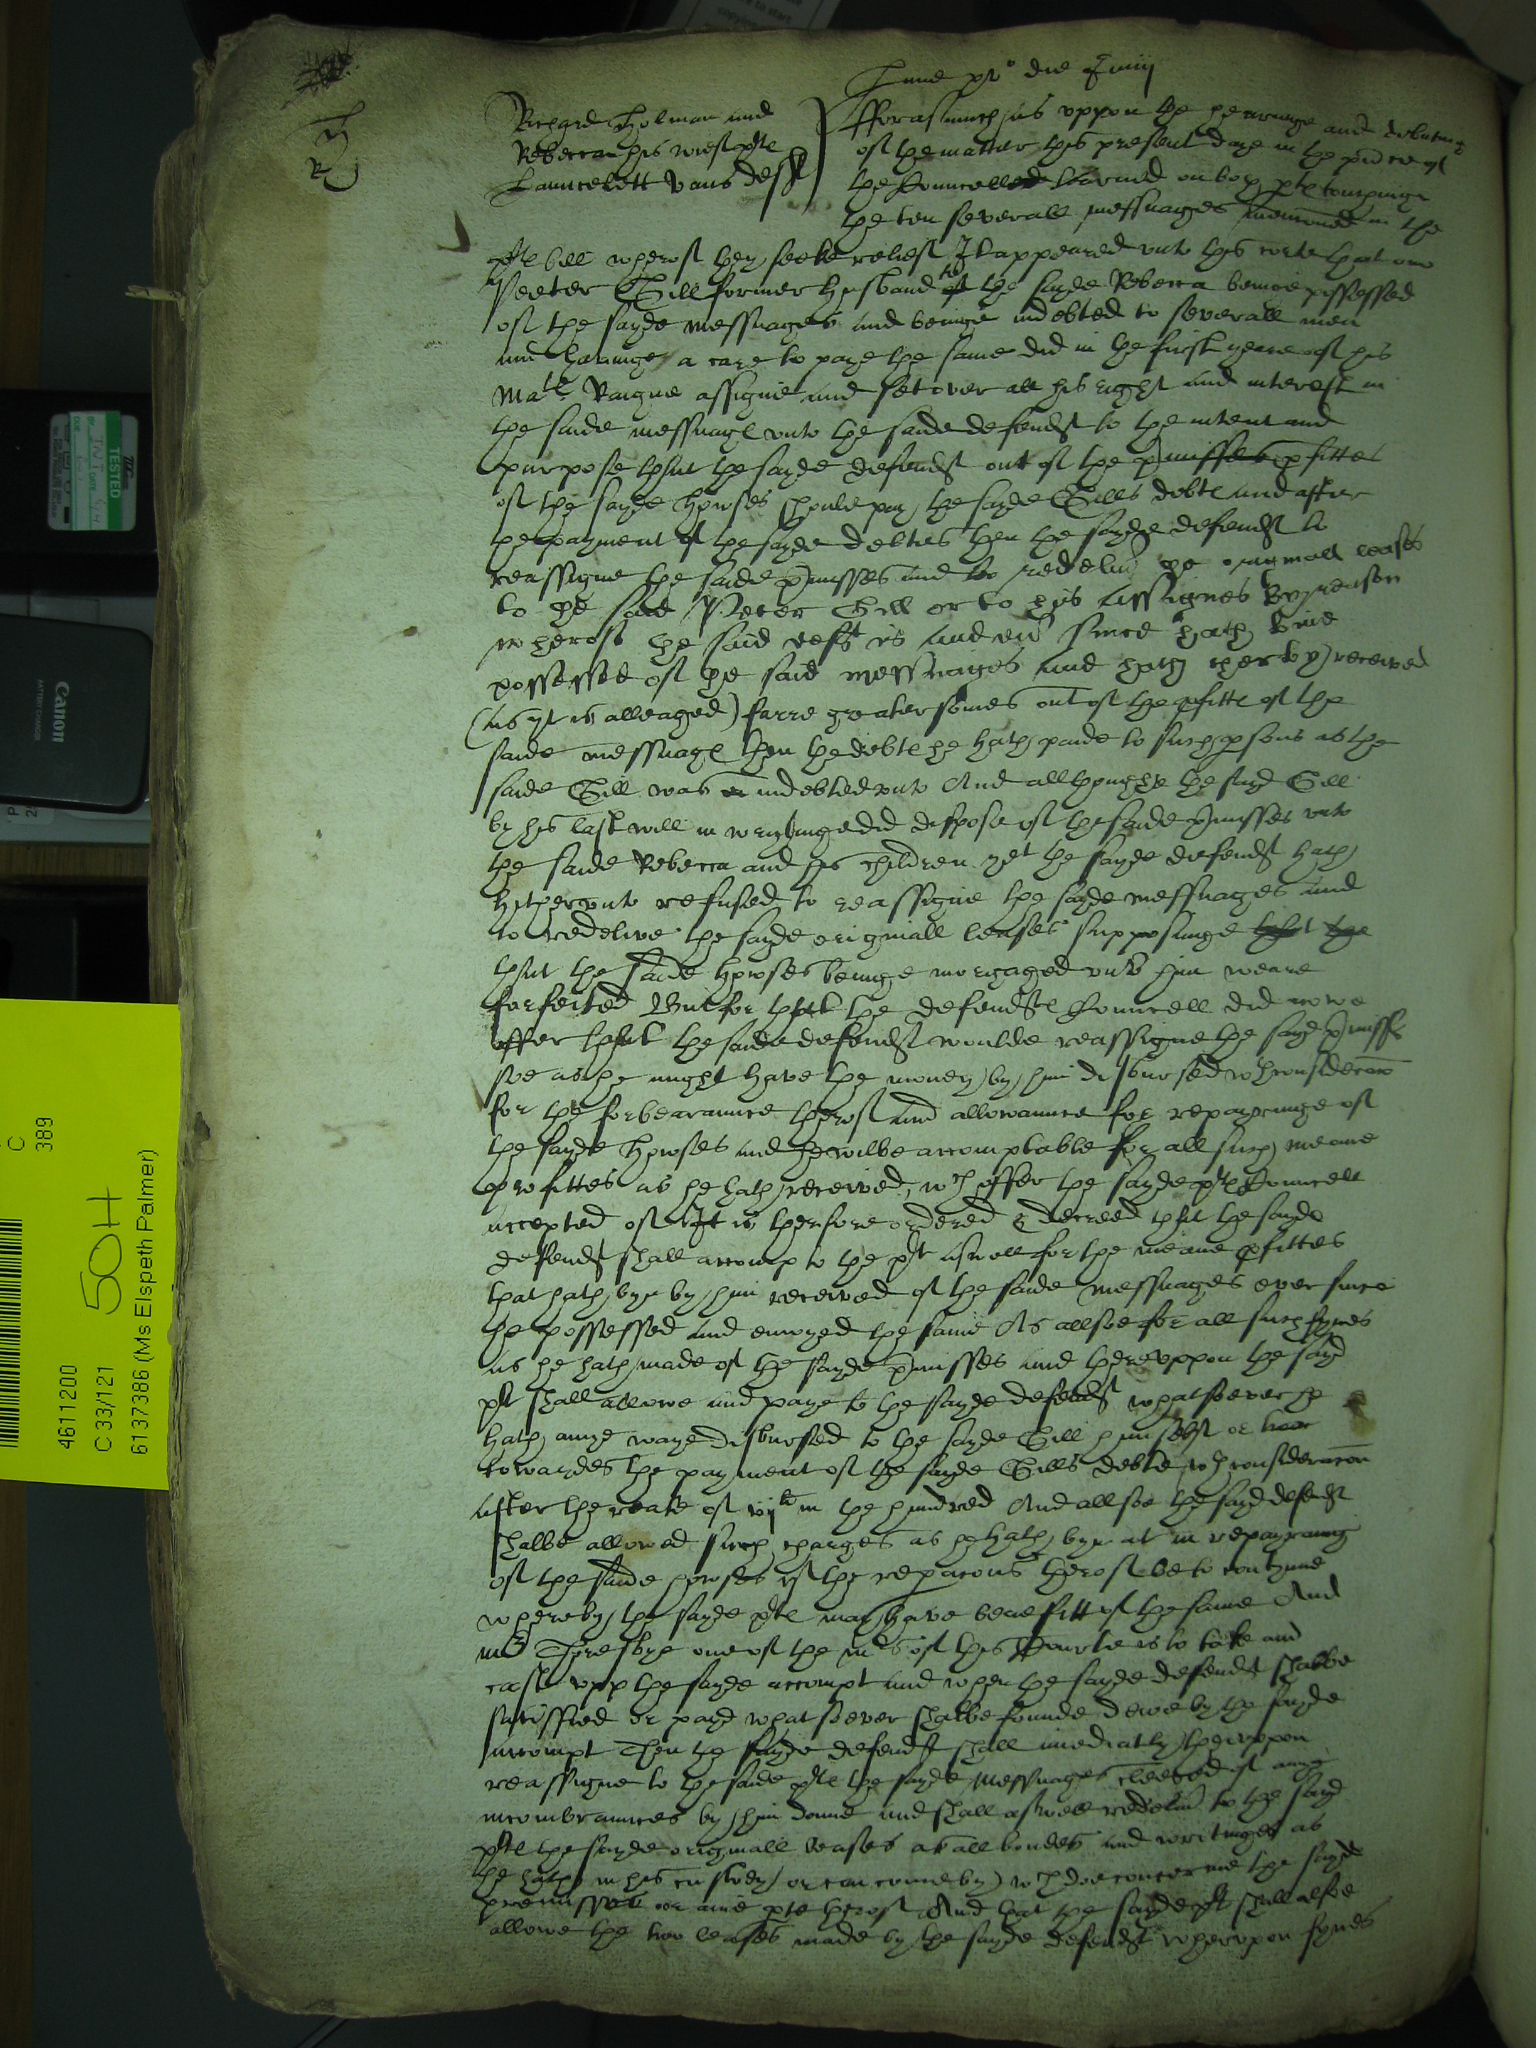 June p̱o die Junij
Richard Holman and
Rebecca his wief plte
Launcelott Vaus deft
Fforasmuch as vppon the hearinge and debatinge
of the matter this present daye in the p̱nce of
the Councell learned on both p̱te touchinge
the ten severall messuages menconed in the
plte bill wherof they seeke relief It appeared vnto this corte that one
Peeter Gill former husband to the sayde Rebecca beinge possessed
of the sayde messuages and beinge indebted to severall men
and havinge a care to paye the same did in the first yeare of his
Mate Raigne assigne and set over all his right and interest in
the saide messuage vnto the saide defendt to the intent and
purpose that the sayde defendt out of the p̱fittes
of the sayde howses should pay the sayde Gills debte and after
the payment of the sayde debtes then the sayde defendt to
reassigne the saide p̱misses and to redeliu the originall leases
to the said Peter Gill or to his Assignes By reason
wherof the said deft is and eu since hath bine
possessed of the said messuages and hath therby received
(as yt is alleaged) farre greater somes out of the p̱fitte of the
saide messuage then the debte he hath paide to such p̱sons as the
saide Gill was indebted vnto And allthoughe the sayd Gill
by his last will in wrytinge did dispose of the saide p̱misses vnto
the saide Rebecca and his children yet the sayde defendt hath
hithervnto refused to reassigne the sayde messuages and
to redelive the sayde originall leases supposinge that the
that the saide howses beinge morgaged vnto him weare
forfeited But for that the defendte Councell did nowe
offer that the saide defendt woulde reassigne the sayd p̱misses
soe as he might have the money by him disbursed wth consideracon
for the forbearaunce therof and allowaunce for repayringe of
the sayde howses and he wilbe accomptable for all such meane
profittes as he hath received, wch offer the sayde plte Councell
accepted of It is therfore ordered & decreed that the sayde
defendt shall accompt to the plt aswell for the meane p̱fittes
that hath byn by him received of the saide messuages ever since
he possessed and enioyed the same As allsoe for all such fynes
as he hath made of the sayde p̱misses and therevppon the sayd
plt shall allowe and paye to the sayde defendt whatsoever he
hath anye waye disbursed to the sayde Gill himself or
towardes the payment of the sayde Gills debte wth consideracon
after the reate of vijli in the hundred And allsoe the sayd defendt
shalbe allowed such charges as he hath byn at in repayringe
of the saide howses yf the reparacons therof be to contynue
whereby the sayde plte may have benefitt of the same And
mr Thresbye one of the mrs of this Courte is to take and
cast vpp the sayde accompt and when the sayde defendt shalbe
satisffied or payd whatsoever shalbe founde dewe by the sayde
accompt Then the sayde defendt shall imediatly thervppon
reassigne to the saide plte the sayde messuages cleered of any
incombraunces by him donne and shall aswell redeliu to the sayd
plte the sayde originall leases as all bondes and writinges as
he hath in his custody or can come by wch doe concerne the sayde
premisses or anie p̱te therof And that the sayde plt shall alsoe
allowe the two leases made by the sayde defendt wherevpon fynes
TESTED
Canon
BATTERY CHARGER
C
389
50H
4611200
C 33/121
6137386 (Ms Elspeth Palmer)